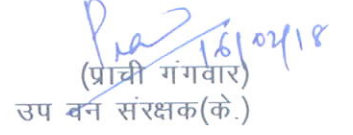 16/02/18
(प्राची गंगवार)
उप वन संरक्षक(के.)